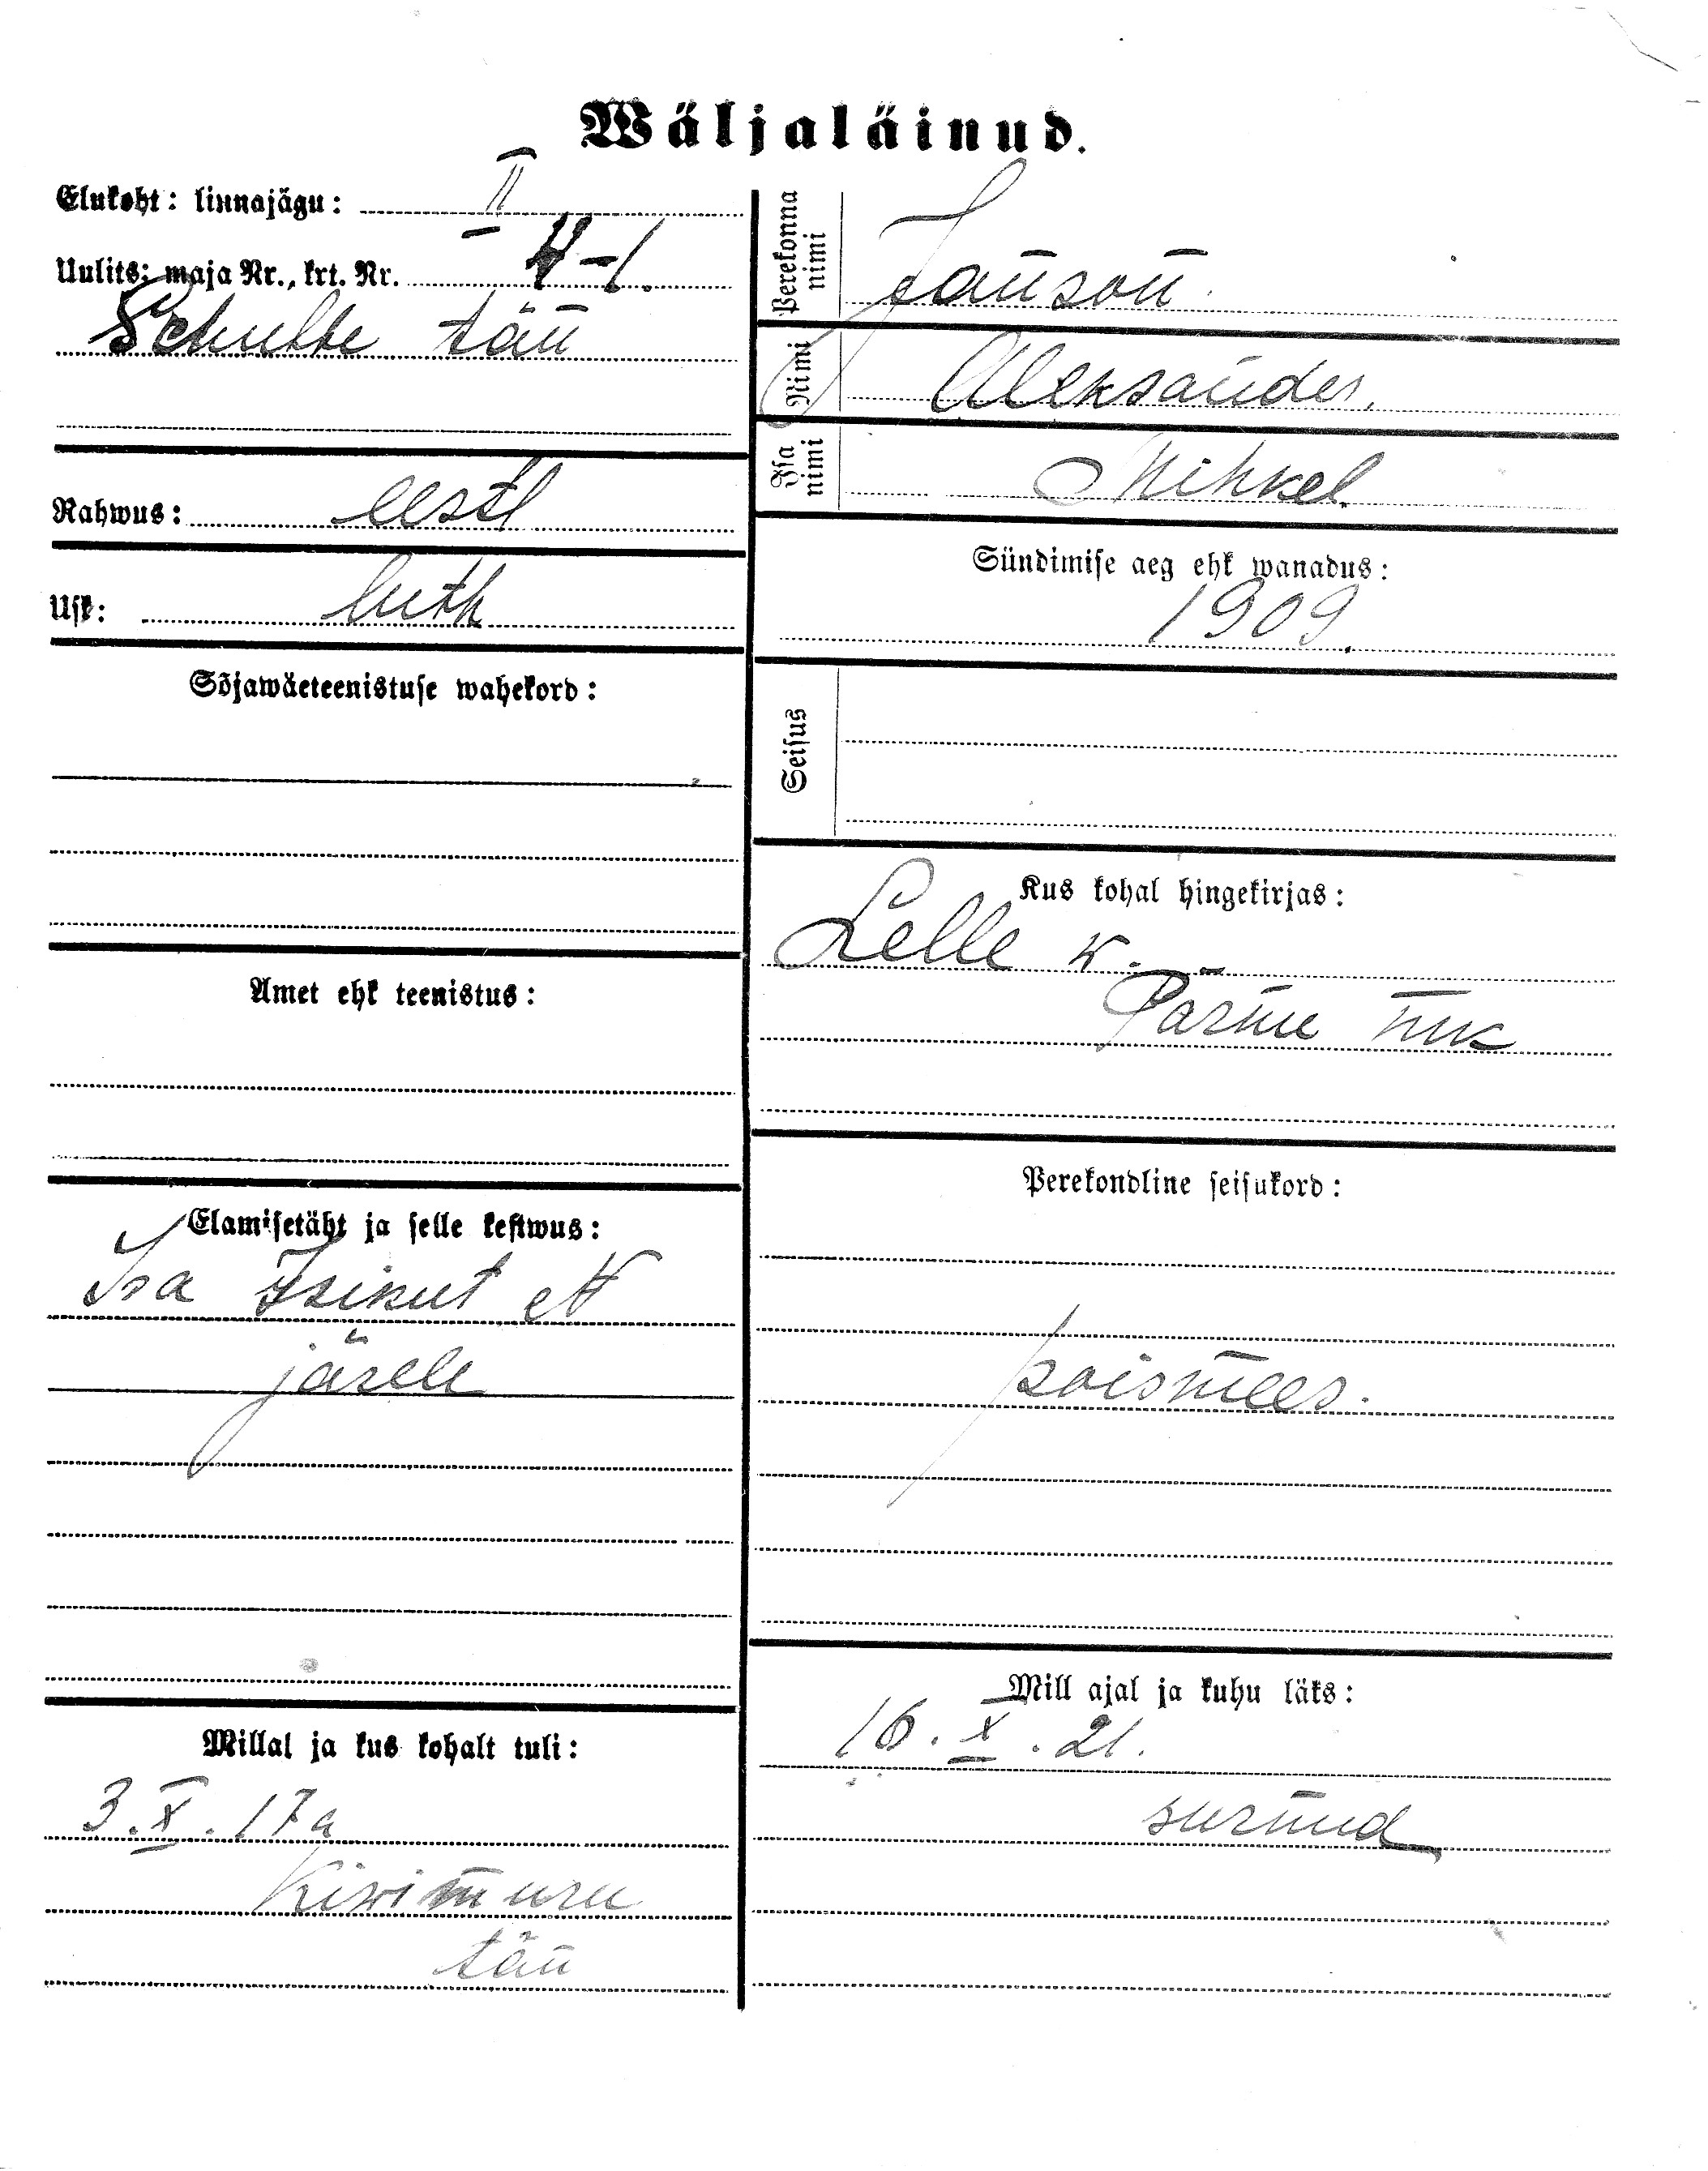 Wäljaläinud.
Elukoht: linnajägu: II
Uulits: maja Nr., krt. Nr. 4-1.
Schulte tän
Rahwus: eestl
Usk: luth
Sõjawäeteenistuse wahekord:
Amet ehk teenistus:
Elamisetäht ja selle kestwus:
Isa Isikut
järele
Millal ja kus kohalt tuli:
3.X.17a
Kiwimuru
tän
Perekonna nimi Janson.
Nimi Aleksander.
Isa nimi Mihkel.
Sündimise aeg ehk wanadus:
1909.
Seisus
Kus kohal hingekirjas:
Lelle w.
Pärnu mk
Perekondline seisukord:
poismees.
Mill ajal ja kuhu läks:
16.X.21.
surnud